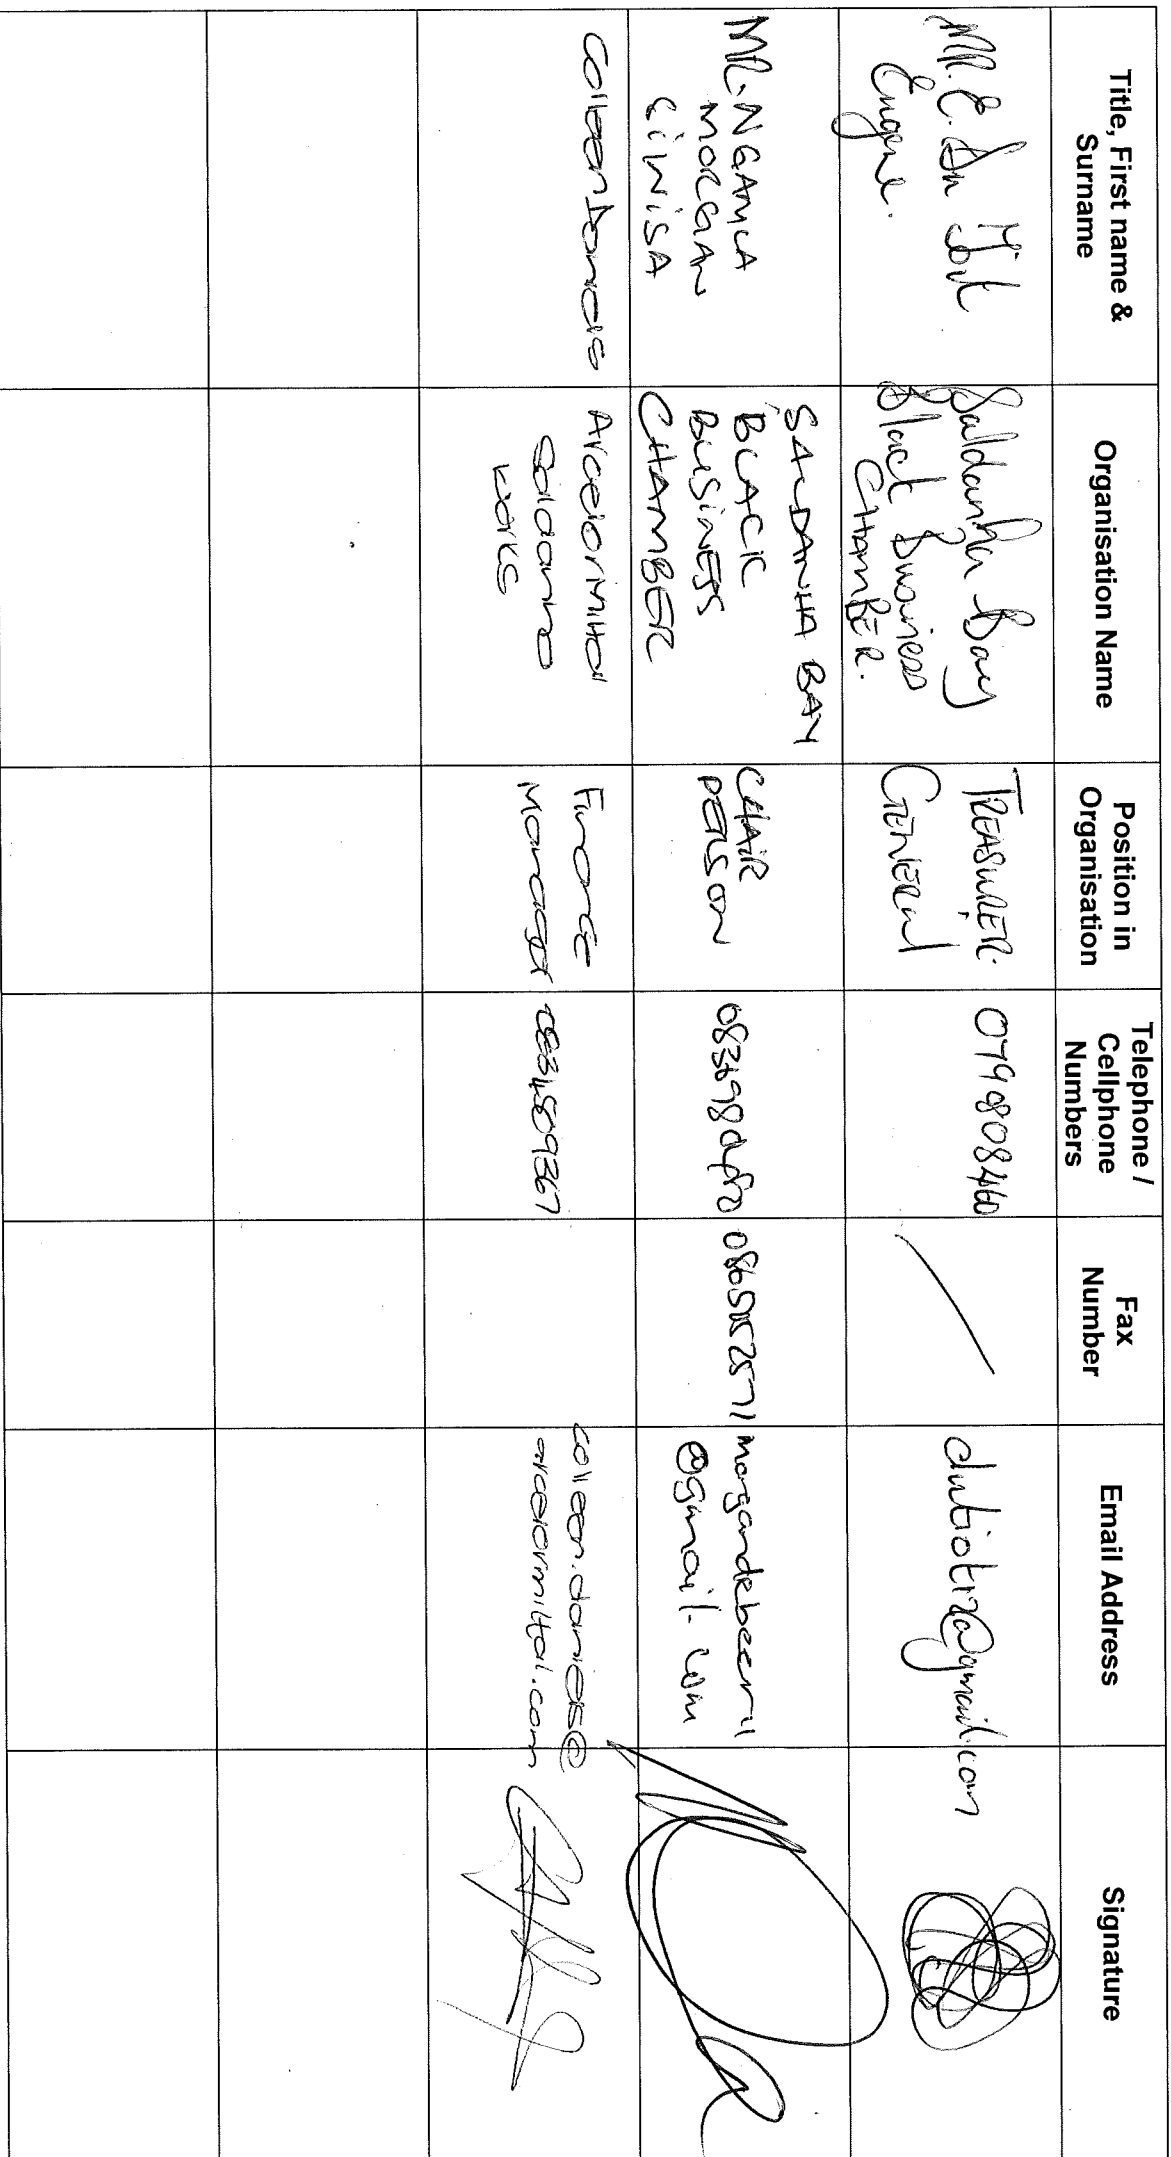 Title, First name &
Surname
Organisation Name
Position in
Organisation
Telephone /
Cellphone
Numbers
Fax
Number
Email Address
Signature
MR. E. Du Toit
Eugene.
Saldanha Bay
Black Business
CHAMBER.
TREASURER.
GENERAL
MR. NGAMLA
MORGAN
SALDANHA BAY
BLACK
BUSINESS
CHAMBER
CHAIR
PERSON
@gmail.com
Colleen Daniels
Arcelormittal
Saldanha
works
Finance
Manager
0834809367
colleen.daniels@
arcelormittal.com